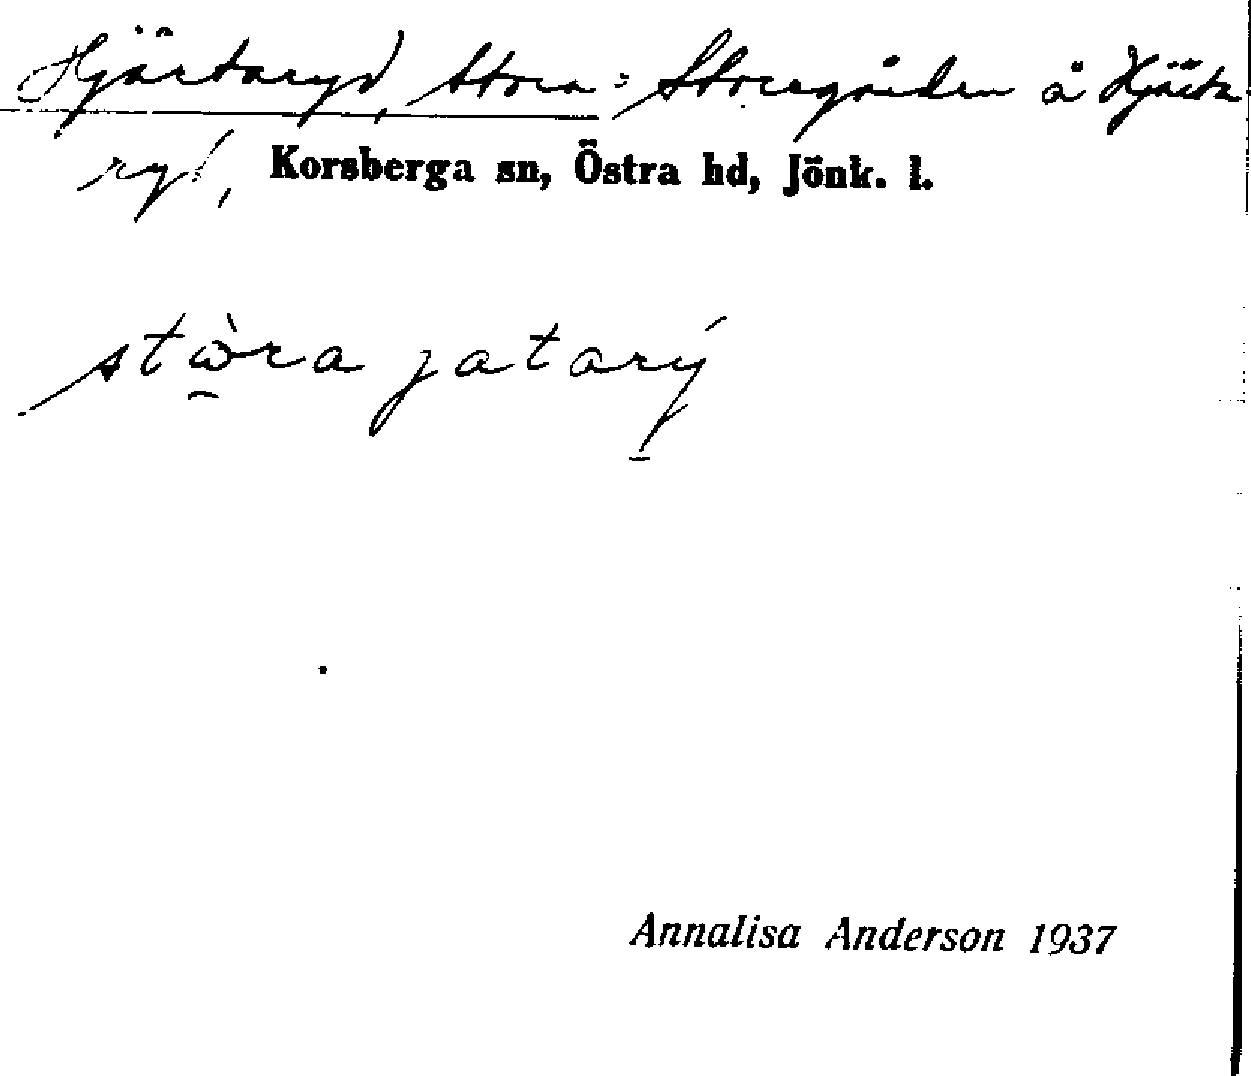 Hjärtaryd, Stora = Storegården å Hjärta
ryd, Korsberga sn, Östra hd, Jönk. l.
stὼra jatarý
Annalisa Anderson 1937